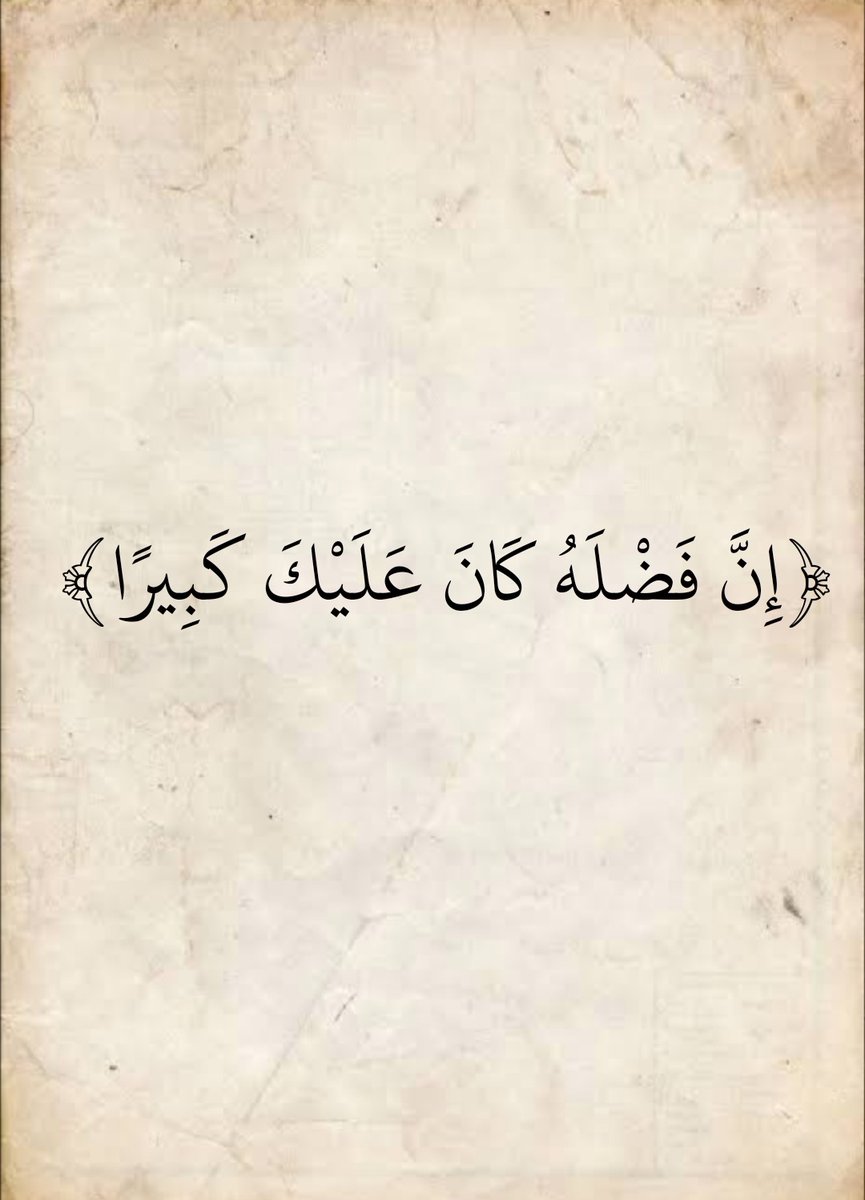 ﴿إِنَّ فَضْلَهُ كَانَ عَلَيْكَ كَبِيرًا﴾